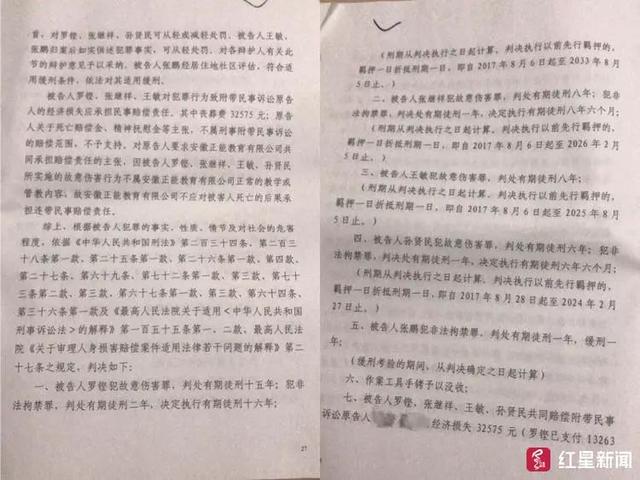 首，对罗铿、张继祥、孙贤民可从轻或减轻处罚。被告人王敏、
张鹏归案后如实供述犯罪事实，可从轻处罚。对各辩护人有关此
节的辩护意见予以采纳。被告人张鹏经居住地社区评估，符合适
用缓刑条件，依法对其适用缓刑。
被告人罗铿、张继祥、王敏对犯罪行为致附带民事诉讼原告
人的经济损失应承担民事赔偿责任。其中丧葬费 32575 元；原告
人关于死亡赔偿金、精神抚慰金等主张，不属刑事附带民事诉讼
的赔偿范围，不予支持。对原告人要求安徽正能教育有限公司共
同承担赔偿责任的主张，因被告人罗铿、张继祥、王敏、孙贤民
所实施的故意伤害行为不属安徽正能教育有限公司正常的教学或
管教内容，故安徽正能教育有限公司不应对被害人死亡的后果承
担连带民事赔偿责任。
综上，根据被告人犯罪的事实、性质、情节及对社会的危害
程度，依据《中华人民共和国刑法》第二百三十四条、第二百三
十八条第一款、第二十五条第一款、第二十六条第一款、第四款、
第二十七条、第六十九条、第七十二条第一款、第三款、第七十三
条第二款、第三款、第六十七条第一款、第三款、第六十四条、
第三十六条第一款及《最高人民法院关于适用<中华人民共和国
刑事诉讼法>的解释》第一百五十五条第一、二款、最高人民法
院《关于审理人身损害赔偿案件适用法律若干问题的解释》第二
十七条之规定，判决如下：
一、被告人罗铿犯故意伤害罪，判处有期徒刑十五年；犯非
法拘禁罪，判处有期徒刑二年，决定执行有期徒刑十六年；
27
（刑期从判决执行之日起计算，判决执行以前先行羁押的，
羁押一日折抵刑期一日，即自 2017 年 8 月 6 日起至 2033 年 8 月
5 日止。）
二、被告人张继祥犯故意伤害罪，判处有期徒刑八年；犯非
法拘禁罪，判处有期徒刑一年，决定执行有期徒刑八年六个月；
（刑期从判决执行之日起计算，判决执行以前先行羁押的，
羁押一日折抵刑期一日，即自 2017 年 8 月 6 日起至 2026 年 2 月
5 日止。）
三、被告人王敏犯故意伤害罪，判处有期徒刑八年；
（刑期从判决执行之日起计算，判决执行以前先行羁押的，
羁押一日折抵刑期一日，即自 2017 年 8 月 6 日起至 2025 年 8 月
5 日止。）
四、被告人孙贤民犯故意伤害罪，判处有期徒刑六年；犯非
法拘禁罪，判处有期徒刑一年，决定执行有期徒刑六年六个月；
（刑期从判决执行之日起计算，判决执行以前先行羁押的，
羁押一日折抵刑期一日，即自 2017 年 8 月 28 日起至 2024 年 2 月
27 日止。）
五、被告人张鹏犯非法拘禁罪，判处有期徒刑一年，缓刑一
年；
（缓刑考验的期间，从判决确定之日起计算）
六、作案工具手铐予以没收；
七、被告人罗铿、张继祥、王敏、孙贤民共同赔偿附带民事
诉讼原告人 经济损失 32575 元（罗铿已支付 13263
红星新闻